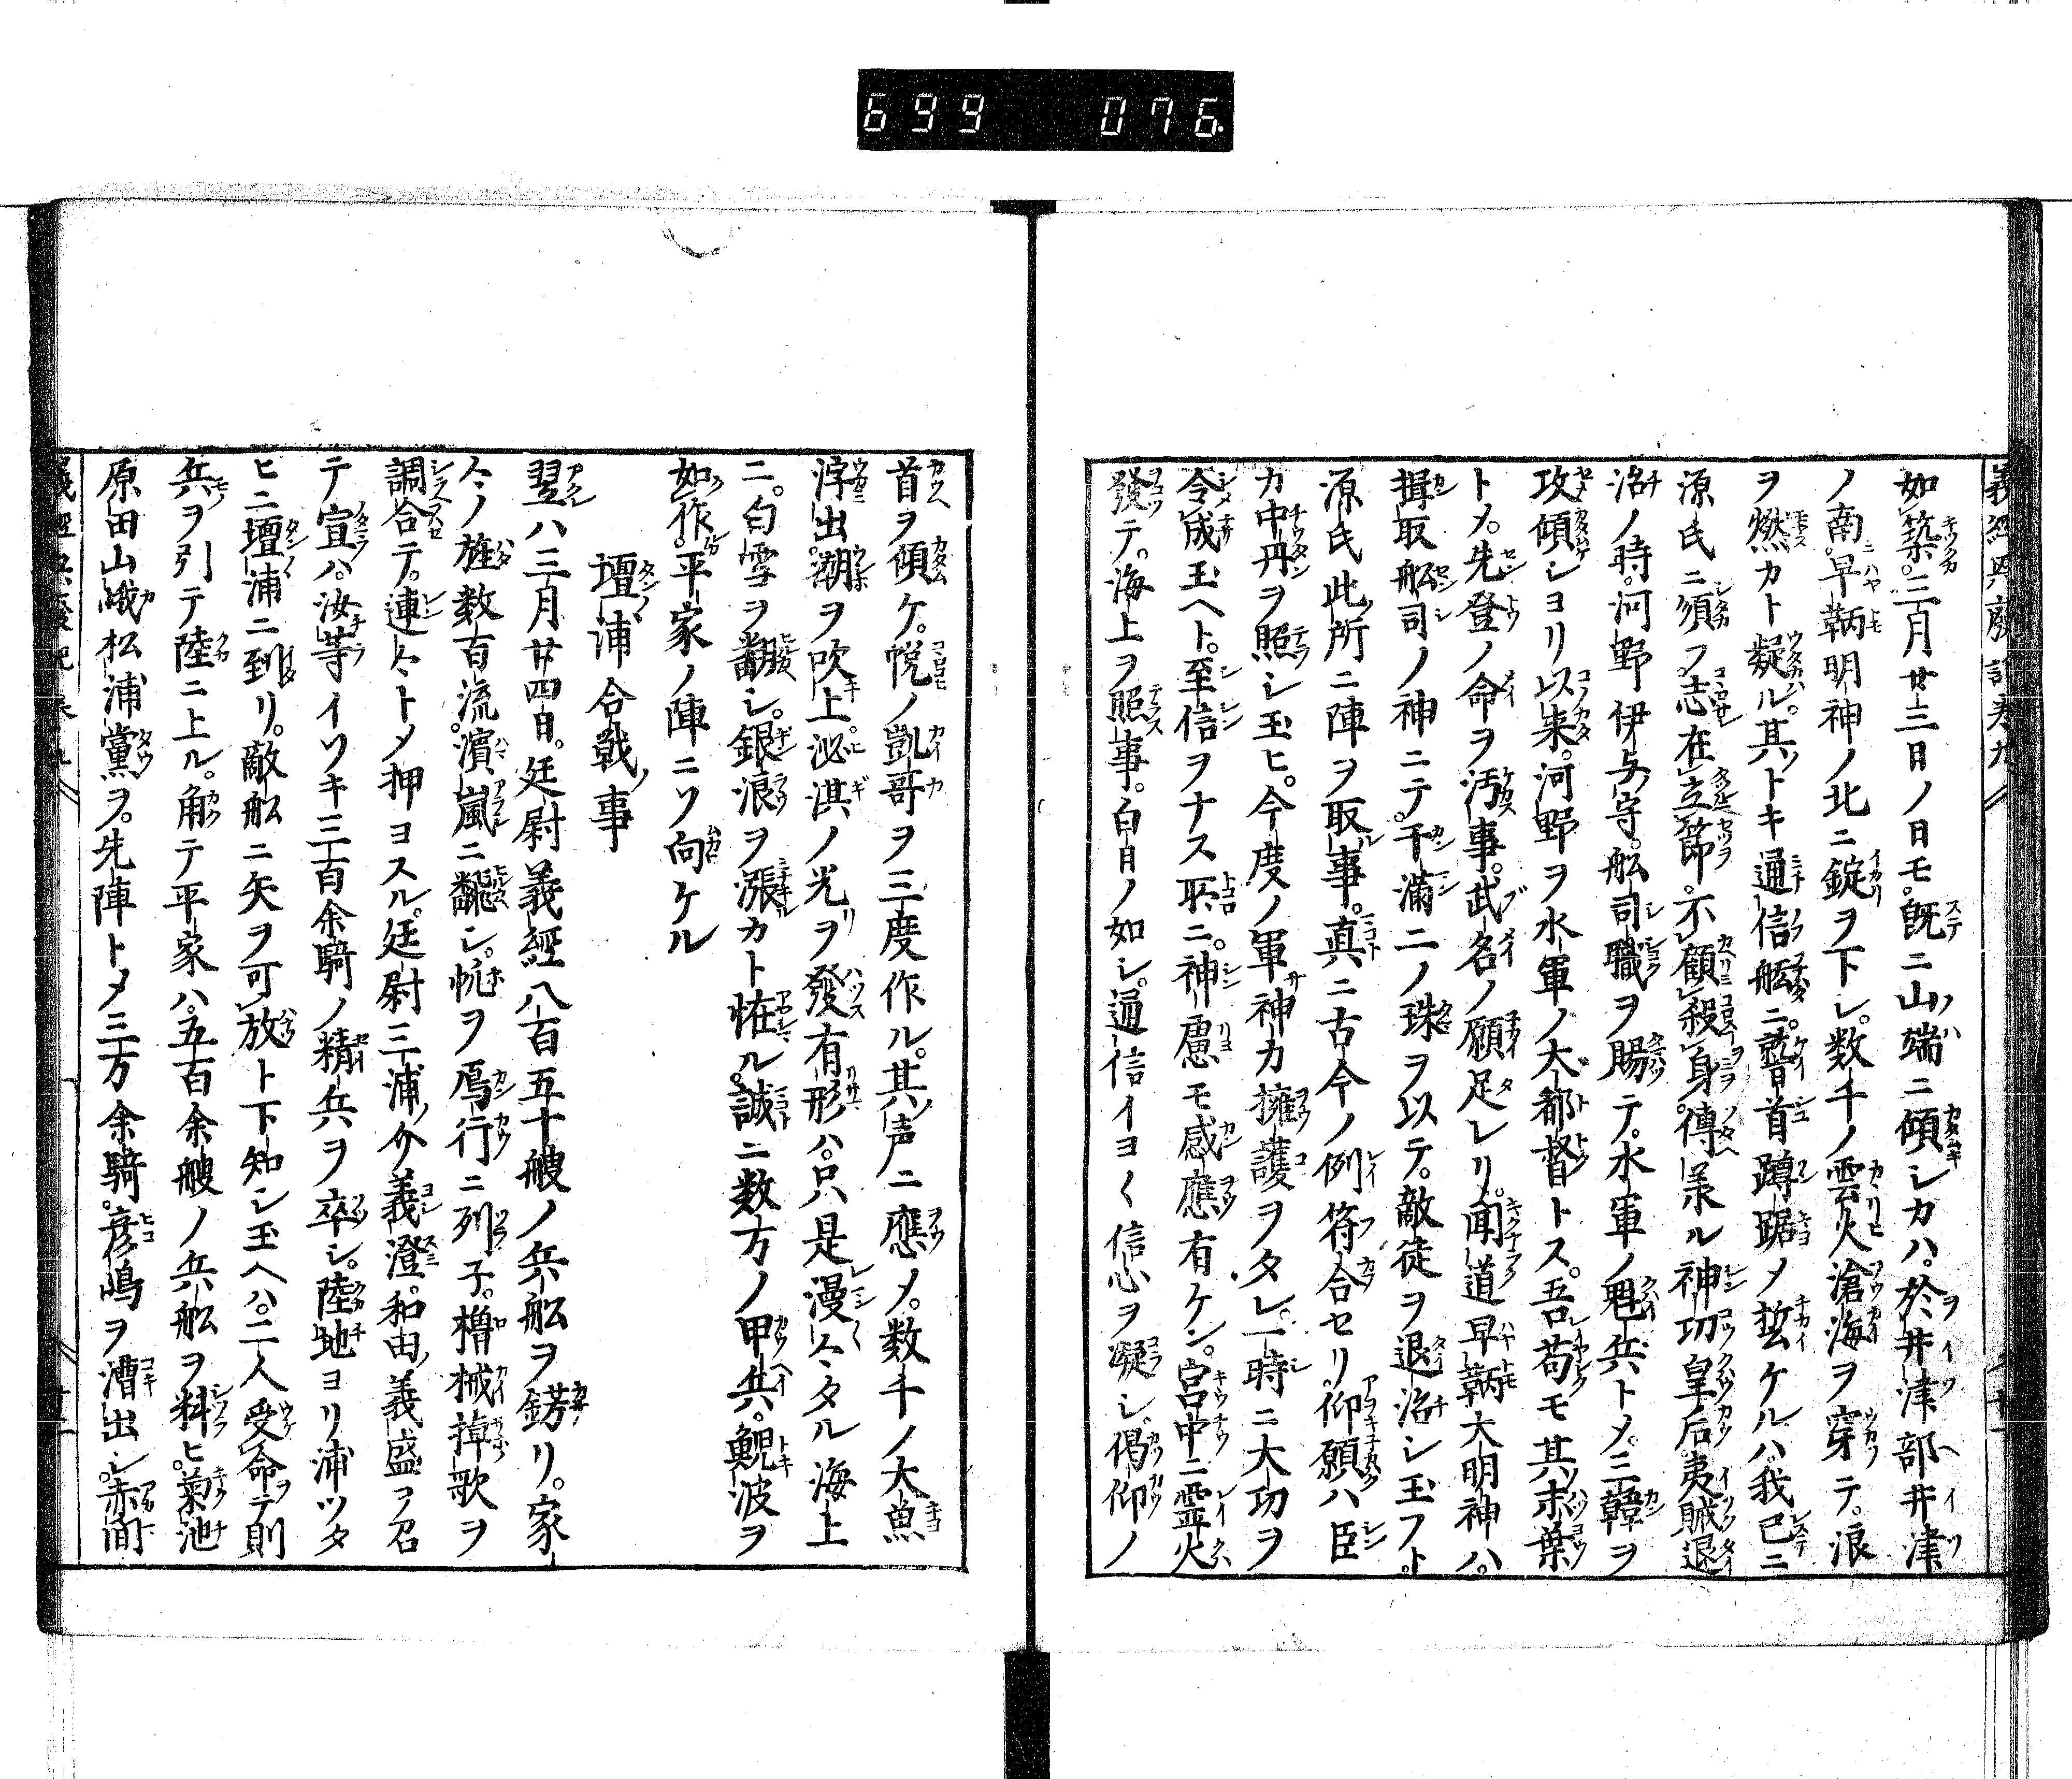 699 076
如築。三月廿三日ノ日モ。既ニ山端ニ傾シカハ。於井津部井津
ノ南。早鞆明神ノ北ニ錠ヲ下レ。数千ノ雲火滄海ヲ穿テ。浪
ヲ燃カト疑ル。其トキ通信舩ニ。稽首蹲踞メ誓ケルハ。我已ニ
源氏ニ須フ志在立節。不顧殺身。傳羕ル神功皇后夷賊退
治ノ時。河野伊与守。舩司職ヲ賜テ。水軍ノ魁兵トメ。三韓ヲ
攻傾シヨリ以来。河野ヲ水軍ノ大都督トス。吾苟モ其末葉
トメ。先登ノ命ヲ汚事。武名ノ願足レリ。聞道早鞆大明神ハ。
揖取舩司ノ神ニテ。干満二ノ珠ヲ以テ。敵徒ヲ退治シ玉フト。
源氏此所ニ陣ヲ取事。真ニ古今ノ例符合セリ。仰願ハ臣
カ中丹ヲ照シ玉ヒ。今度ノ軍神力擁護ヲタレ。一時ニ大功ヲ
令成玉ヘト。至信ヲナス所ニ。神慮モ感應有ケン。宮中ニ霊火
發テ。海上ヲ照事。白日ノ如シ。通信イヨ〱信心ヲ凝シ。偈仰ノ
首ヲ傾ケ。悦ノ凱哥ヲ三度作ル。其声ニ應メ。数千ノ大魚
浮出。潮ヲ吹上。泌淇ノ光ヲ發有形ハ。只是漫々タル海上
ニ。白雪ヲ翻シ。銀浪ヲ漲カト恠ル。誠ニ数万ノ甲兵。鯢波ヲ
如作。平家ノ陣ニソ向ケル
壇浦合戦ノ事
翌ハ三月廿四日。廷尉義經八百五十艘ノ兵舩ヲ錺リ。家
々ノ旌数百流。濱嵐ニ飜シ。帆ヲ鳫行ニ列子。櫓械掉歌ヲ
調合テ。連々トメ押ヨスル。廷尉三浦ノ介義澄。和田ノ義盛ヲ召
テ宣ハ。汝等イソキ三百余騎ノ精兵ヲ卒シ。陸地ヨリ浦ツタ
ヒニ壇浦ニ到リ。敵舩ニ矢ヲ可放ト下知シ玉ヘハ。二人受命テ則
兵ヲ引テ陸ニ上ル。角テ平家ハ。五百余艘ノ兵舩ヲ料ヒ。菊池
原田山峨松浦黨ヲ。先陣トメ三万余騎。彦嶋ヲ漕出シ。赤間